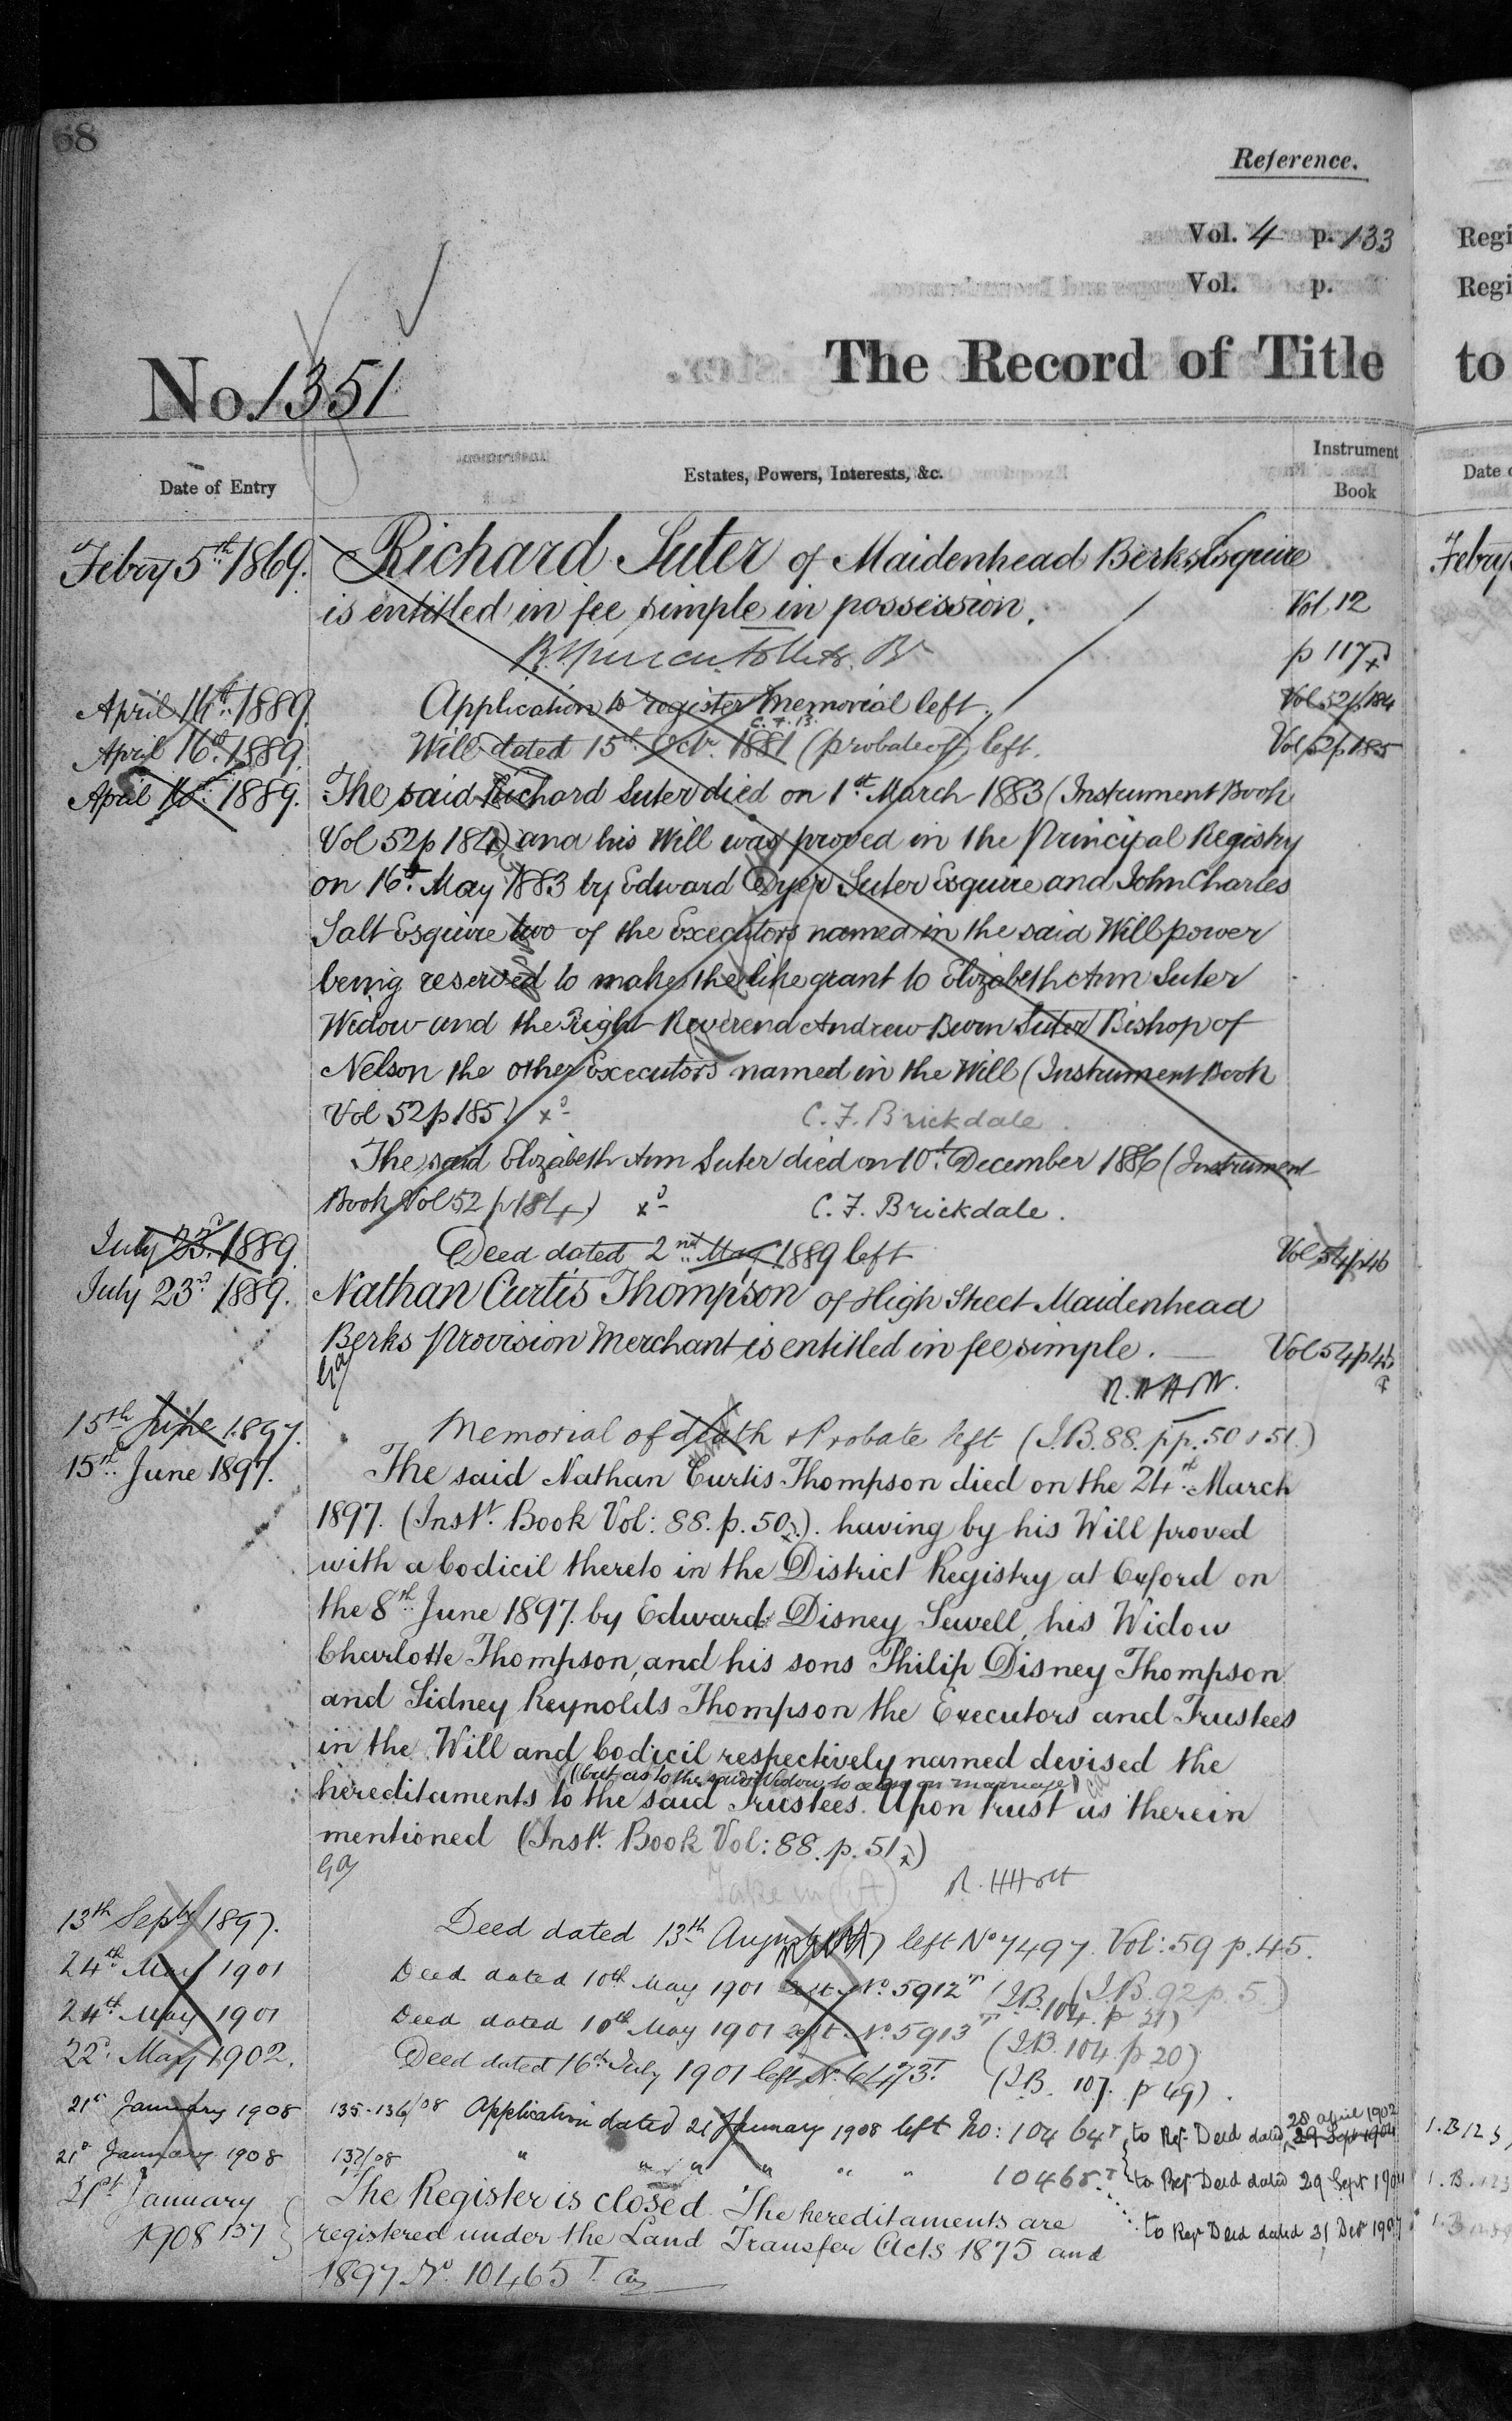 68
Reference.
Vol. 4 p. 133
Vol. p.
No. 1351
The Record of Title
Date of Entry
Estates, Powers, Interests, &c.
Instrument Book
Febry 5th 1869. Richard Suter of Maidenhead Berks, Esquire
is entitled in fee simple in possession. Vol. 12
p 117
April 16th 1889. Application to register Memorial left. Vol 52 p 184
April 16th 1889. Will dated 15th Octr. 1881 (probate of) left. Vol 52 p 185
C. F. B.
April 16th 1889. The said Richard Suter died on 1st March 1883 (Instrument Book
Vol 52 p 184) and his Will was proved in the Principal Registry
on 16th May 1883 by Edward Dyer Suter Esquire and John Charles
Salt Esquire two of the Executors named in the said Will power
being reserved to make the like grant to Elizabeth Ann Suter
Widow and the Right Reverend Andrew Burn Suter Bishop of
Nelson the other Executors named in the Will (Instrument Book
Vol 52 p 185) C. F. Brickdale.
The said Elizabeth Ann Suter died on 10th December 1886 (Instrument
Book Vol 52 p 184) C. F. Brickdale.
July 23d 1889. Deed dated 2nd May 1889 left Vol 54 p 46
July 23d 1889. Nathan Curtis Thompson of High Street Maidenhead
Berks Provision Merchant is entitled in fee simple. Vol 54 p 46
15th June 1897. Memorial of death & Probate left (I.B. 88. pp. 50 & 51.)
15th June 1897. The said Nathan Curtis Thompson died on the 24th March
1897. (Inst. Book Vol: 88. p. 50). having by his Will proved
with a Codicil thereto in the District Registry at Oxford on
the 8th June 1897 by Edward Disney Sewell, his Widow
Charlotte Thompson, and his sons Philip Disney Thompson
and Sidney Reynolds Thompson the Executors and Trustees
in the Will and Codicil respectively named devised the
(but as to the said Widow to cease on marriage)
hereditaments to the said Trustees. Upon trust as therein
mentioned (Inst. Book Vol: 88. p. 51)
Take in (A)
13th Septr 1897. Deed dated 13th August left No 7497. Vol: 59 p. 45.
(I.B. 92 p. 5.)
24th May 1901 Deed dated 10th May 1901 left No. 5912T (I.B. 104. p 21)
24th May 1901 Deed dated 10th May 1901 left No. 5913T (I.B. 104. p 20)
22d May 1902. Deed dated 16th July 1901 left No. 6473T (I.B. 107. p 49).
21st January 1908 135-136/08 Application dated 21 January 1908 left No: 10464T to Regr Deed dated 29 Sept 1904 28 April 1902
21st January 1908 137/08 " " " " " " 10465T to Regr Deed dated 29 Sept 1904
to Regr Deed dated 31 Decr 1907
21st January 1908 137 The Register is closed. The hereditaments are
registered under the Land Transfer Acts 1875 and
1897 No. 10465 T
Regi
Regi
to
Date
Febry